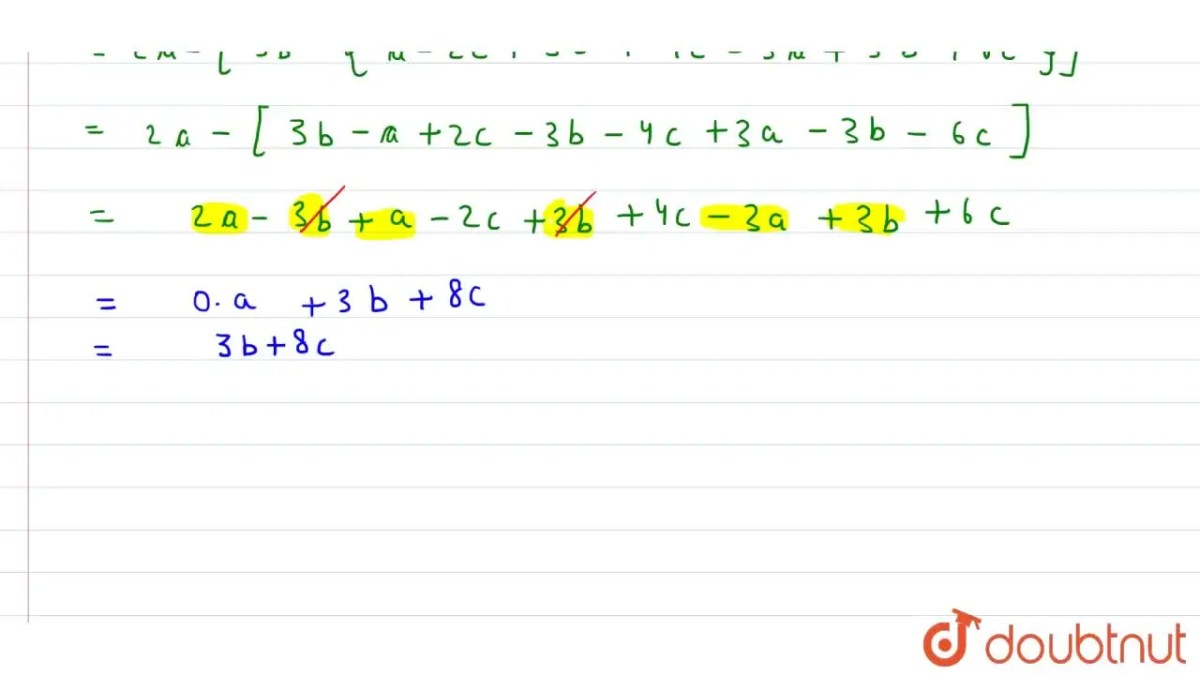 = 2a - [ 3b - a + 2c - 3b - 4c + 3a - 3b - 6c ]
= 2a - 3b + a - 2c + 3b + 4c - 3a + 3b + 6c
= 0. a + 3b + 8c
= 3b + 8c
doubtnut